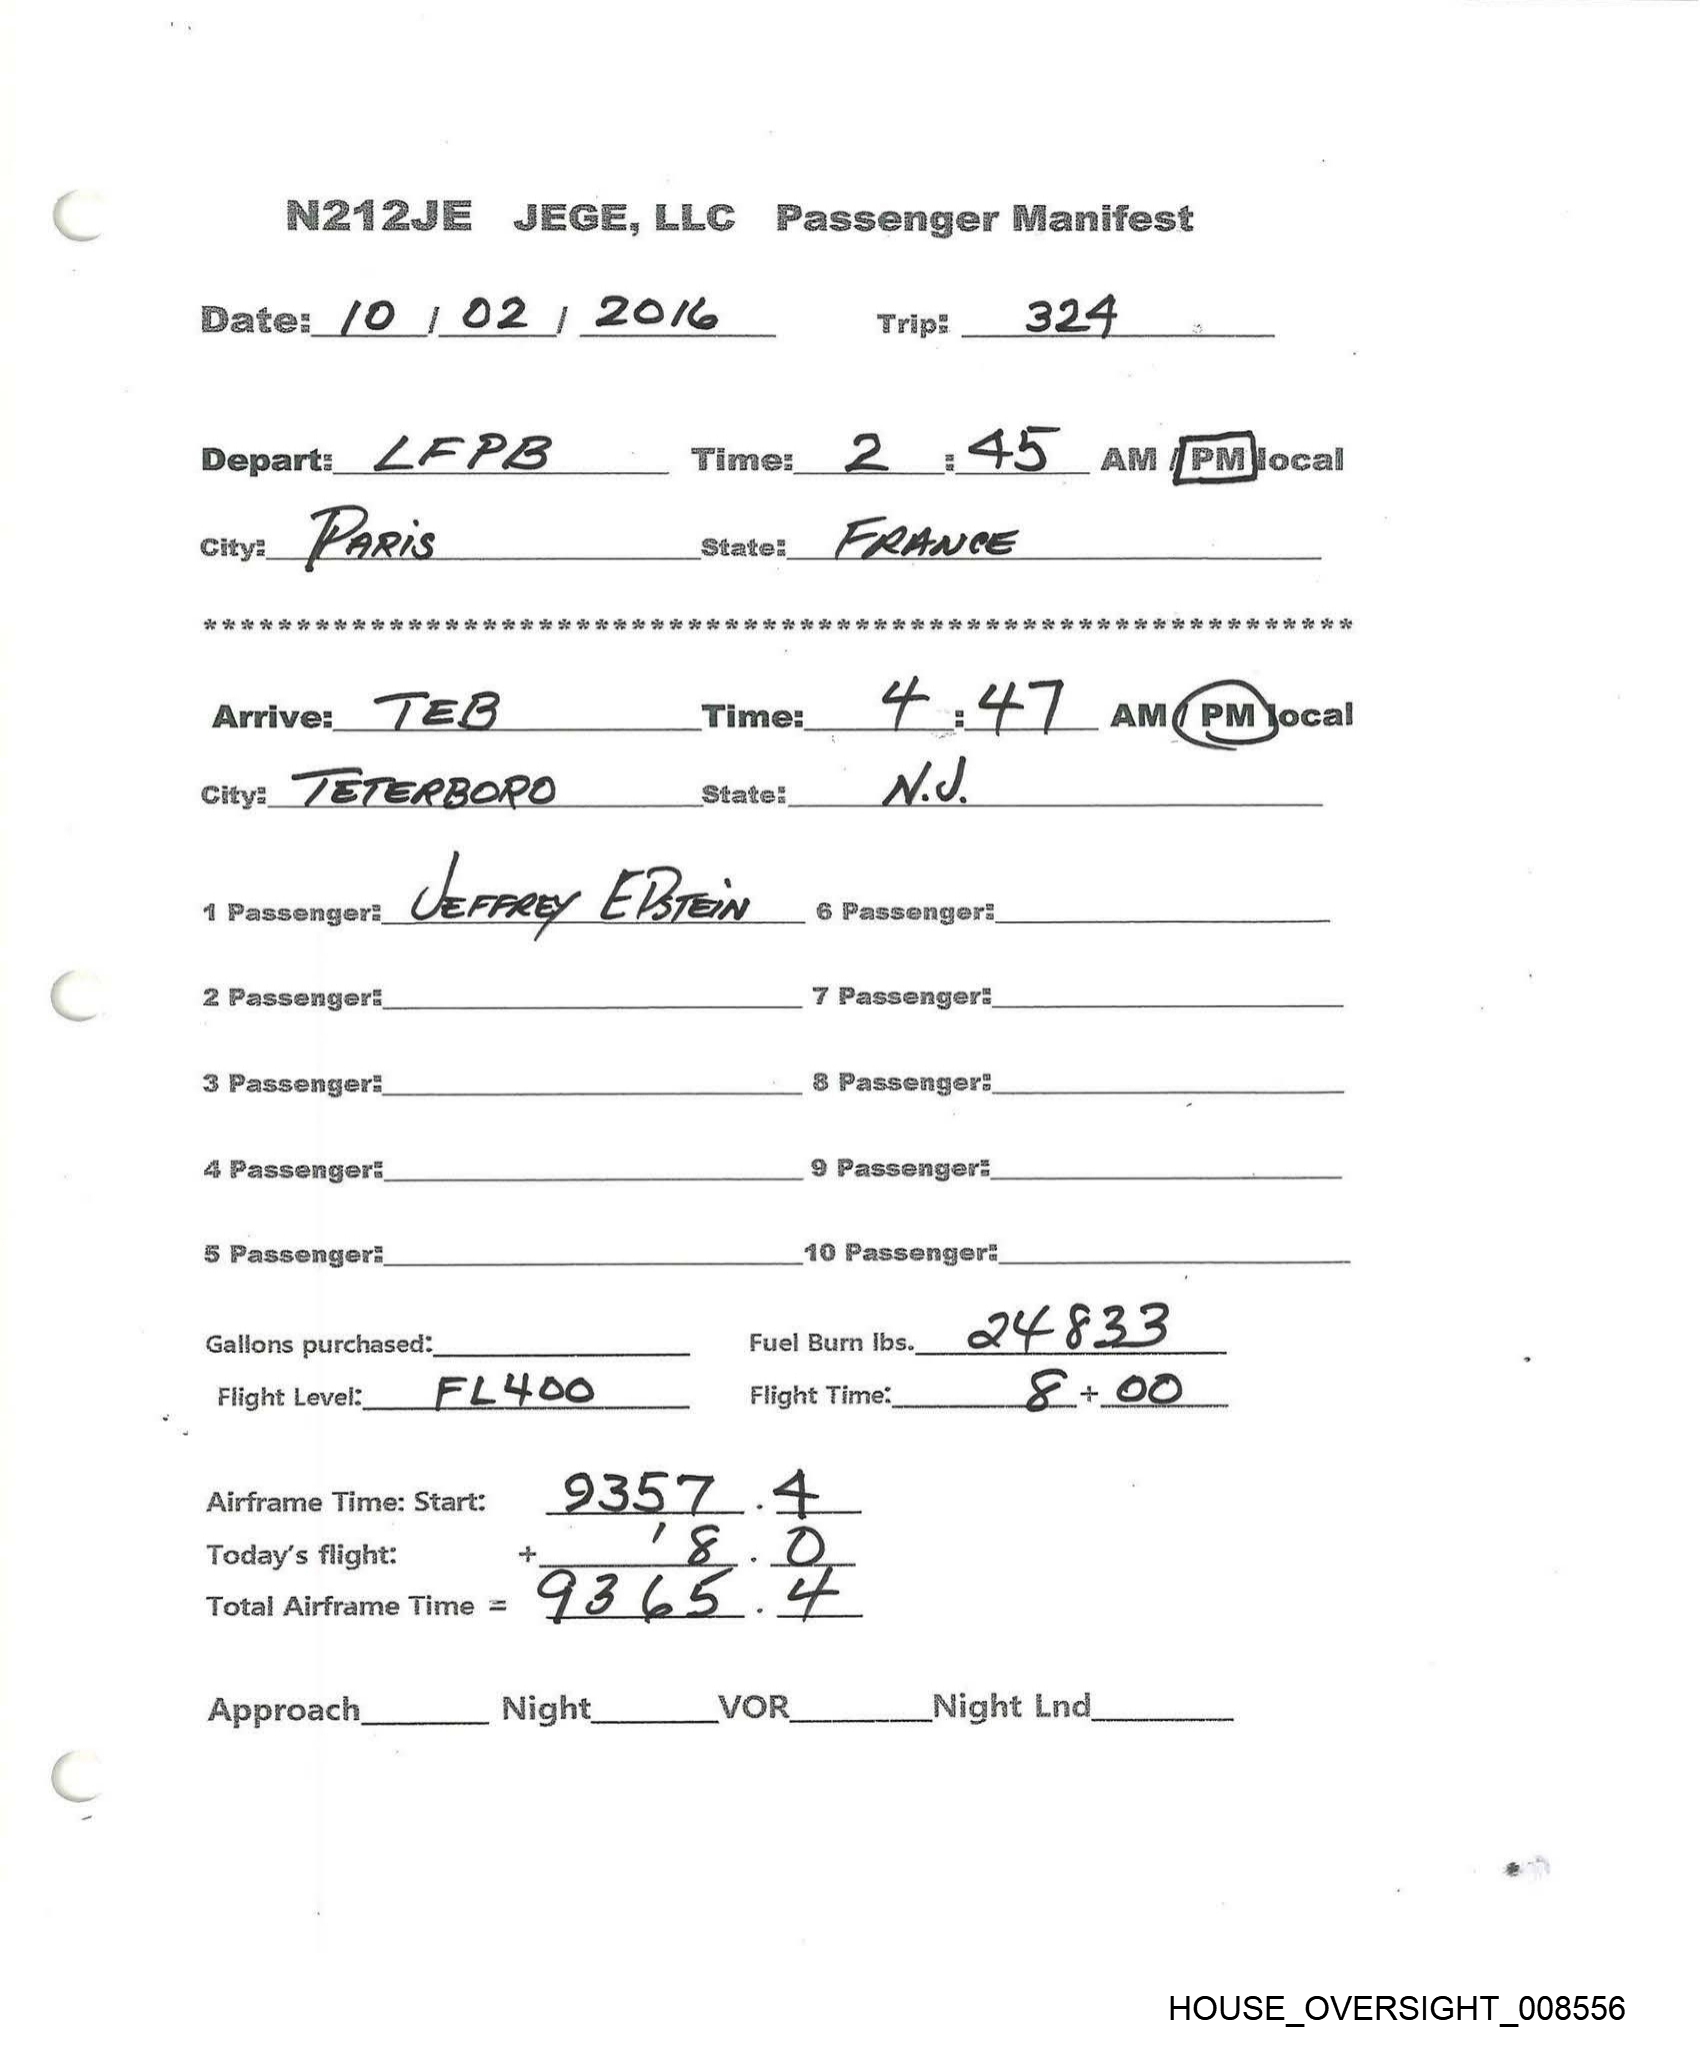 N212JE JEGE, LLC Passenger Manifest
Date: 10 / 02 / 2016 Trip: 324
Depart: LFPB Time: 2 : 45 AM / PM local
City: PARIS State: FRANCE
**************************************************************
Arrive: TEB Time: 4 : 47 AM / PM local
City: TETERBORO State: N.J.
1 Passenger: JEFFREY EPSTEIN 6 Passenger:
2 Passenger: 7 Passenger:
3 Passenger: 8 Passenger:
4 Passenger: 9 Passenger:
5 Passenger: 10 Passenger:
Gallons purchased: Fuel Burn lbs. 24833
Flight Level: FL400 Flight Time: 8 + 00
Airframe Time: Start: 9357 . 4
Today's flight: + 8 . 0
Total Airframe Time = 9365 . 4
Approach Night VOR Night Lnd
HOUSE_OVERSIGHT_008556